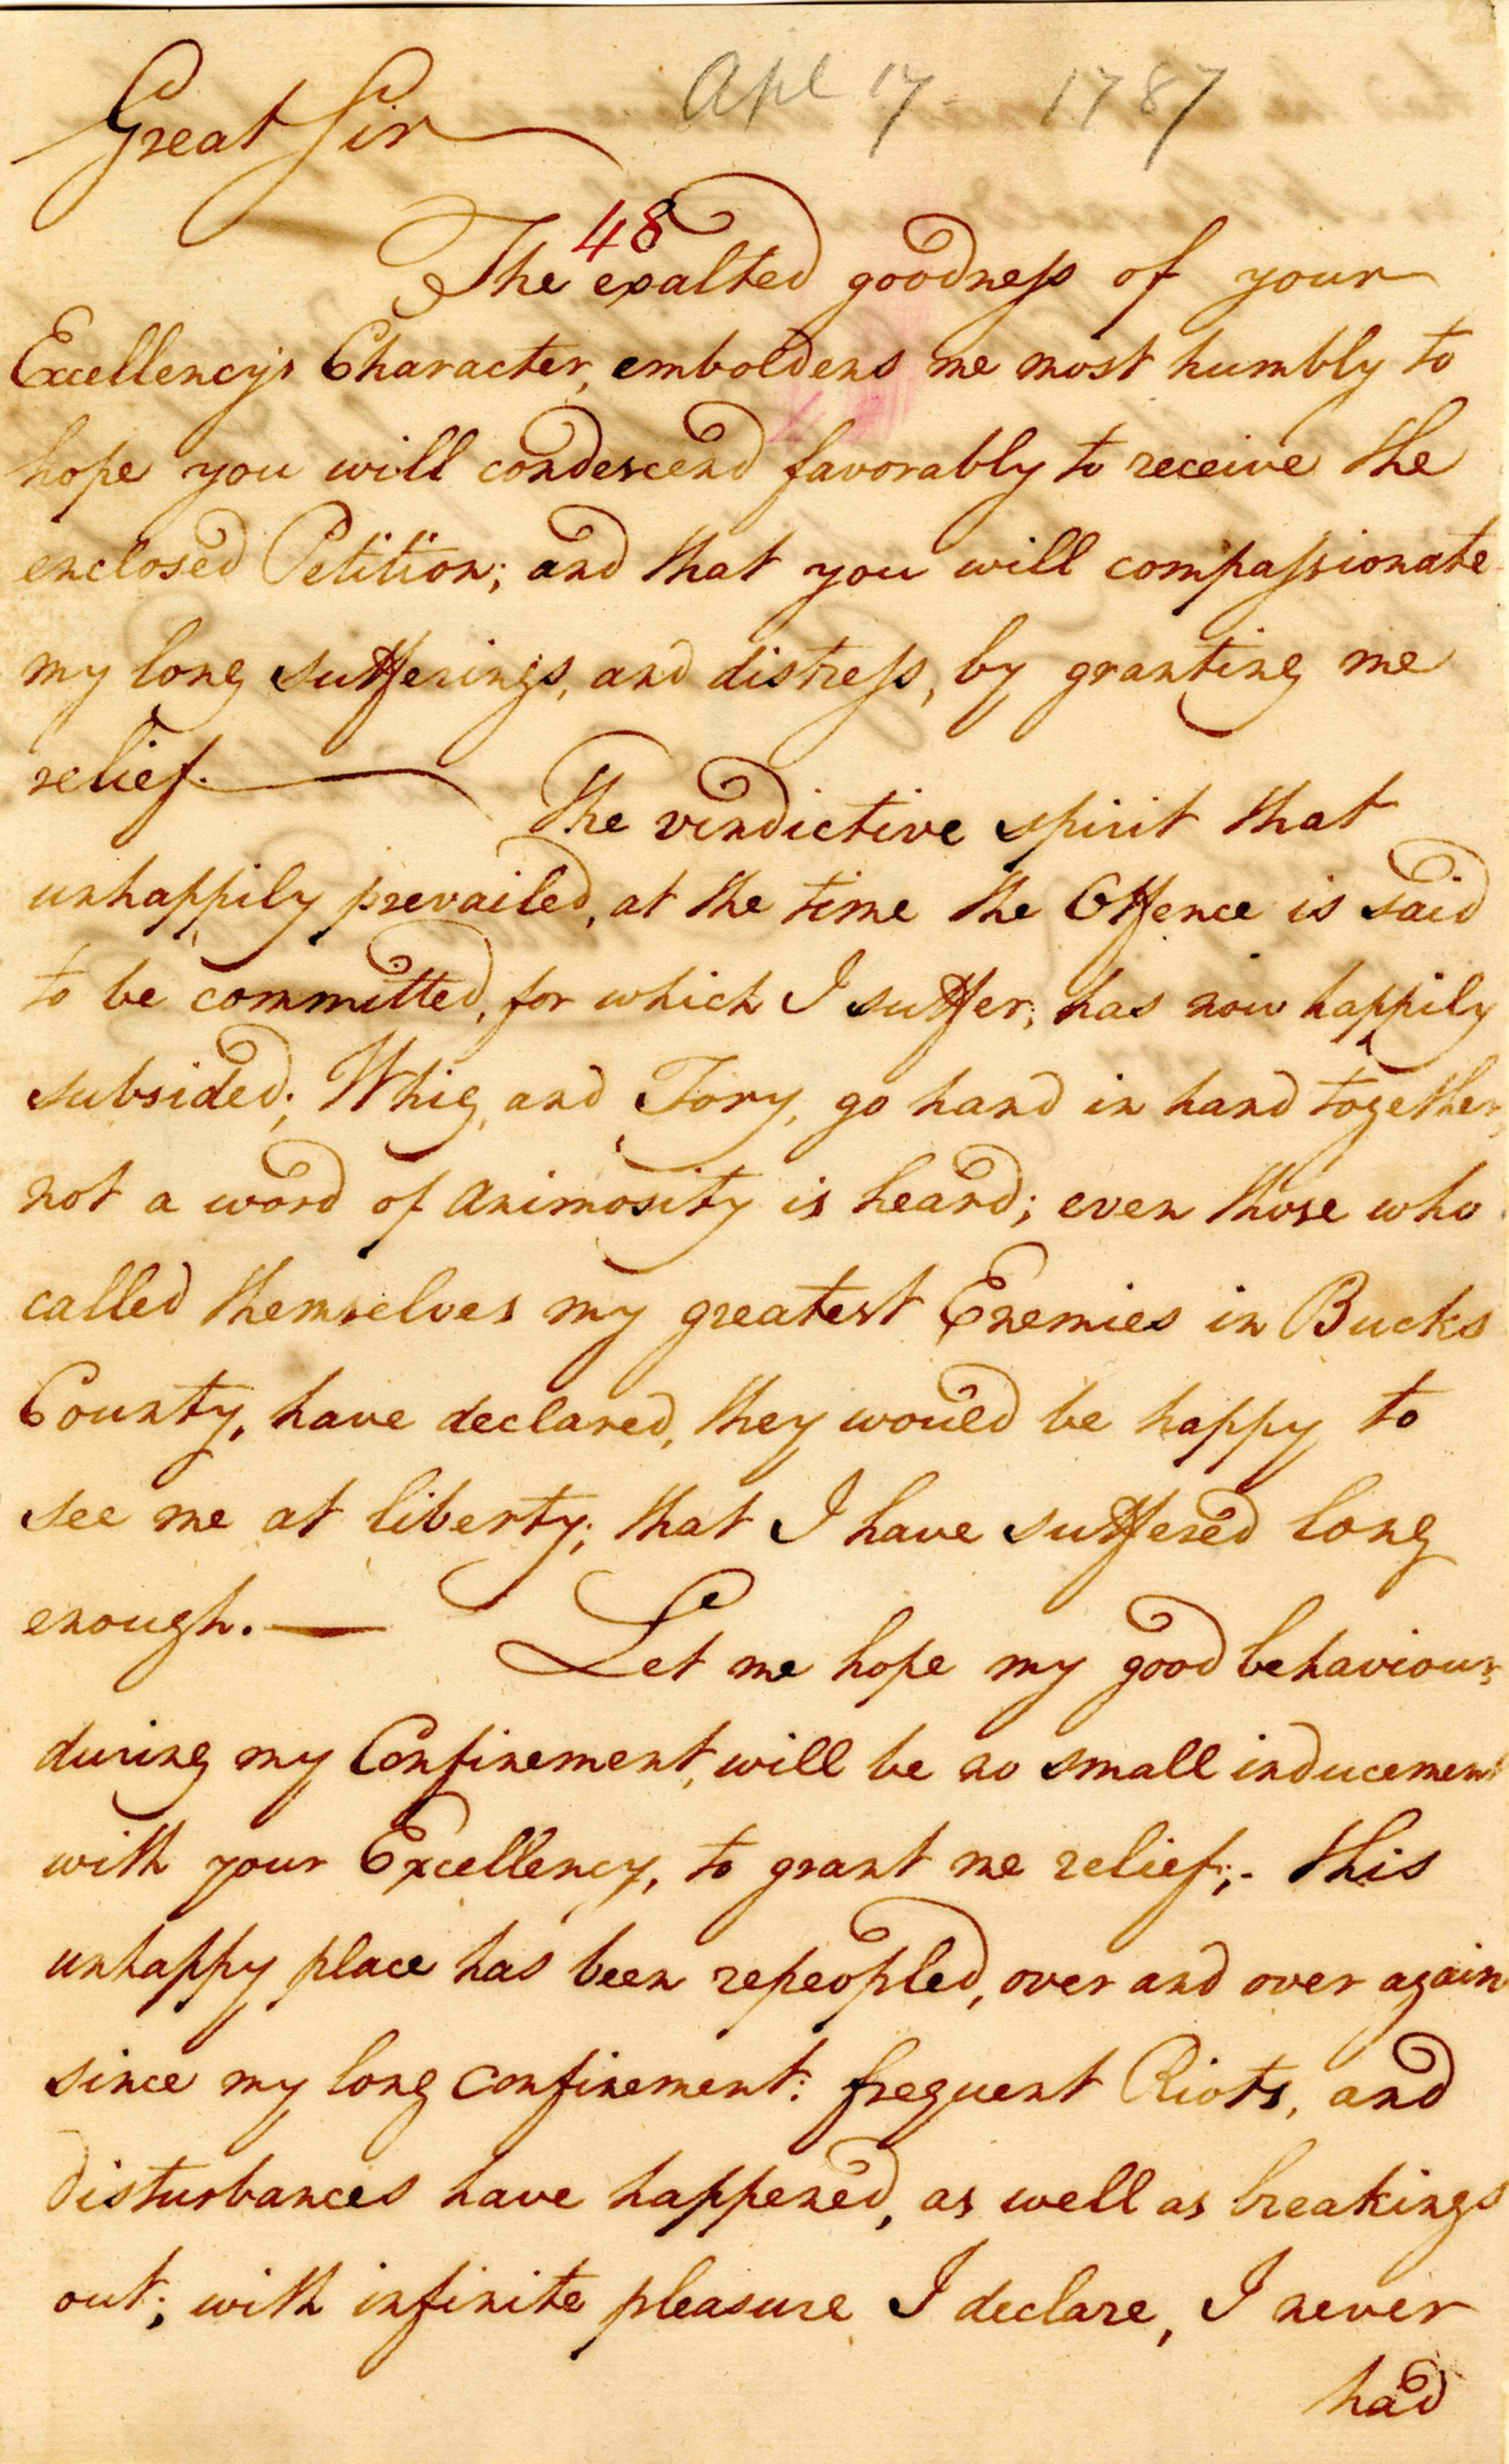 Great Sir
Apl 17 - 1787
48
The exalted goodness of your
Excellency's Character, emboldens me most humbly to
hope you will condescend favorably to receive the
enclosed Petition; and that you will compassionate
my long sufferings, and distress, by granting me
relief.
The vindictive spirit that
unhappily prevailed, at the time the Offence is said
to be committed, for which I suffer; has now happily
subsided; Whig, and Tory, go hand in hand together,
not a word of animosity is heard; even those who
called themselves my greatest Enemies in Bucks
County, have declared, they would be happy to
see me at liberty; that I have suffered long
enough. —
Let me hope my good behaviour,
during my Confinement, will be no small inducement
with your Excellency, to grant me relief;- this
unhappy place has been repeopled, over and over again
since my long confinement: frequent Riots, and
disturbances have happened, as well as breakings
out; with infinite pleasure I declare, I never
had